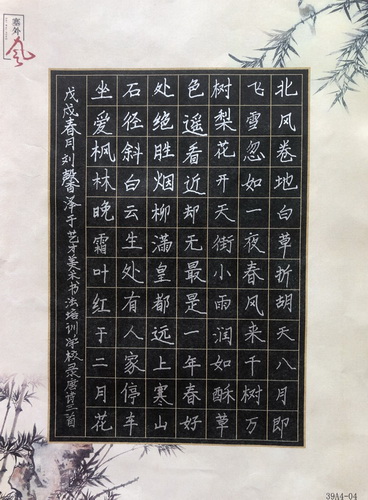 塞外
风
北风卷地白草折胡天八月即
飞雪忽如一夜春风来千树万
树梨花开天街小雨润如酥草
色遥看近却无最是一年春好
处绝胜烟柳满皇都远上寒山
石径斜白云生处有人家停车
坐爱枫林晚霜叶红于二月花
戊戌春月刘泽于艺才美术书法培训学校录唐诗三首
39A4-04